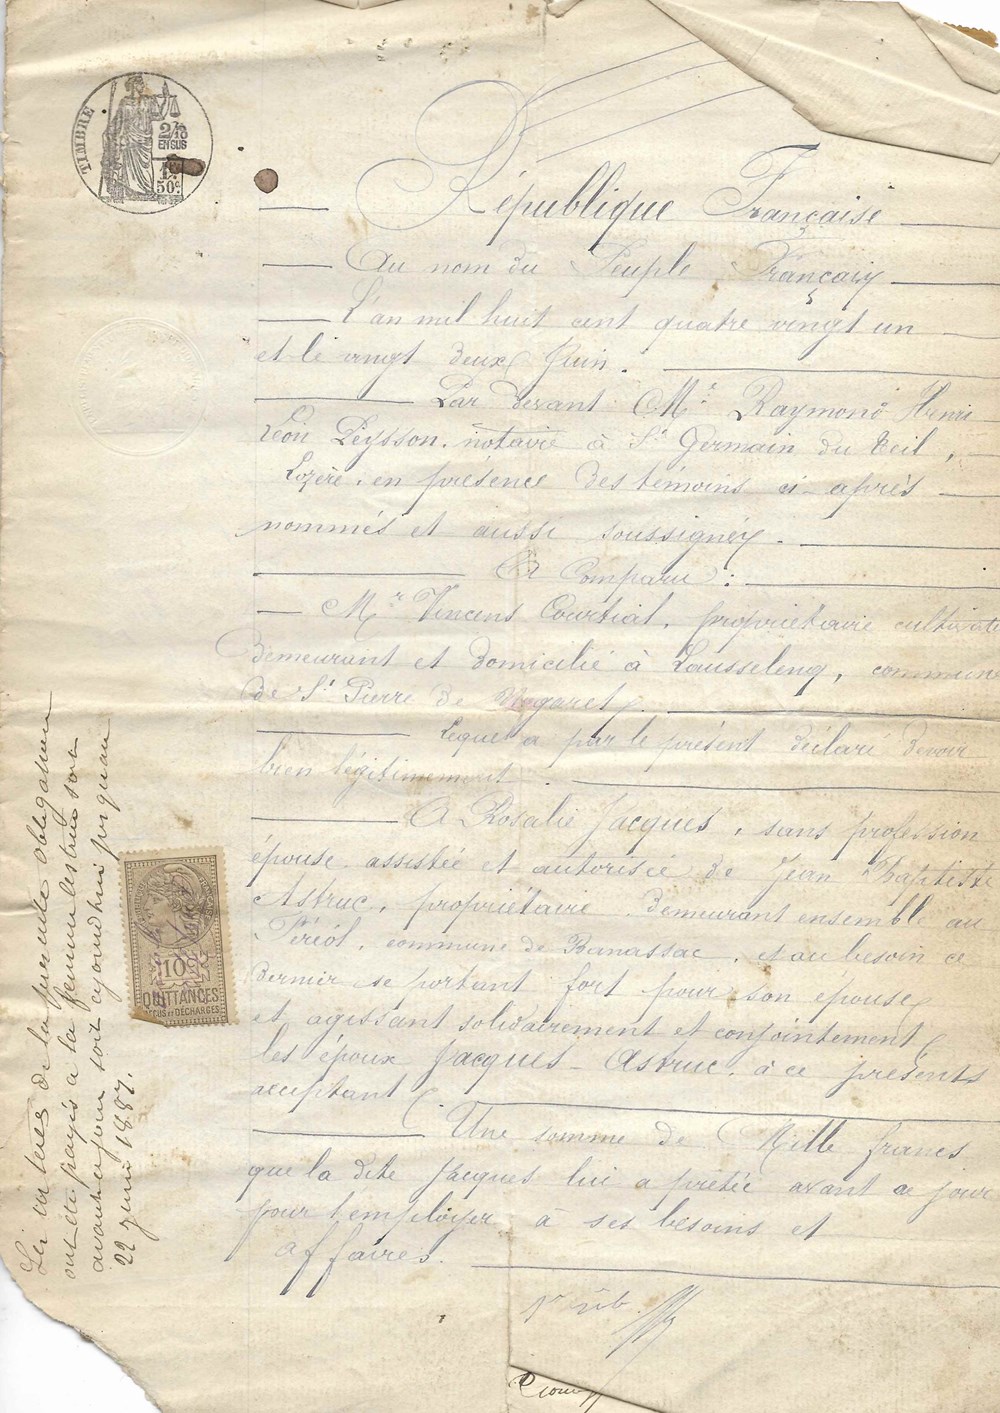 TIMBRE
2/10
EN SUS
1F
50c
République Française
Au nom du Peuple Français
L'an mil huit cent quatre vingt un
et le vingt deux Juin.
Par devant Me Raymond Henri
Léon Peysson, notaire à St Germain du Teil,
Lozère, en présence des témoins ci-après
nommés et aussi soussignés.
A Comparu :
Mr Vincens Courtial, propriétaire cultivate
demeurant et domicilié à Lausselenq, commune
de St Pierre de Nogaret,
Lequel a par le présent déclaré devoir
bien légitimement
A Rosalie Jacques, sans profession
épouse assistée et autorisée de Jean Baptiste
Astruc, propriétaire demeurant ensemble au
commune de Banassac, et au besoin ce
dernier se portant fort pour son épouse
et agissant solidairement et conjointement
les époux Jacques-Astruc, à ce présents
acceptant.
Une somme de Mille francs
que la dite Jacques lui a prêtée avant ce jour
pour l'employer à ses besoins et
affaires.
1er
10c
QUITTANCES
REÇUS ET DÉCHARGES
Les intérêts de la présente obligation
ont été payés a la femme lestrue
avant ce jour soit aujourd'hui jusquau
22 juin 1887.